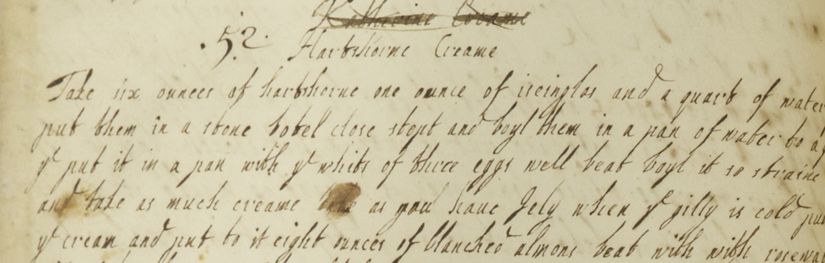 Katherine Creame
.52. Hartshorne Creame
Take six ounces of hartshorne one ounce of iseinglas and a quart of water
put them in a stone botel close stopt and boyl them in a pan of water to a
yn put it in a pan with ye whits of three eggs well beat boyl it so straine
and take as much creame as you have Jely when ye jilly is cold put
ye cream and put to it eight ounces of blanched almons beat with with rosewat